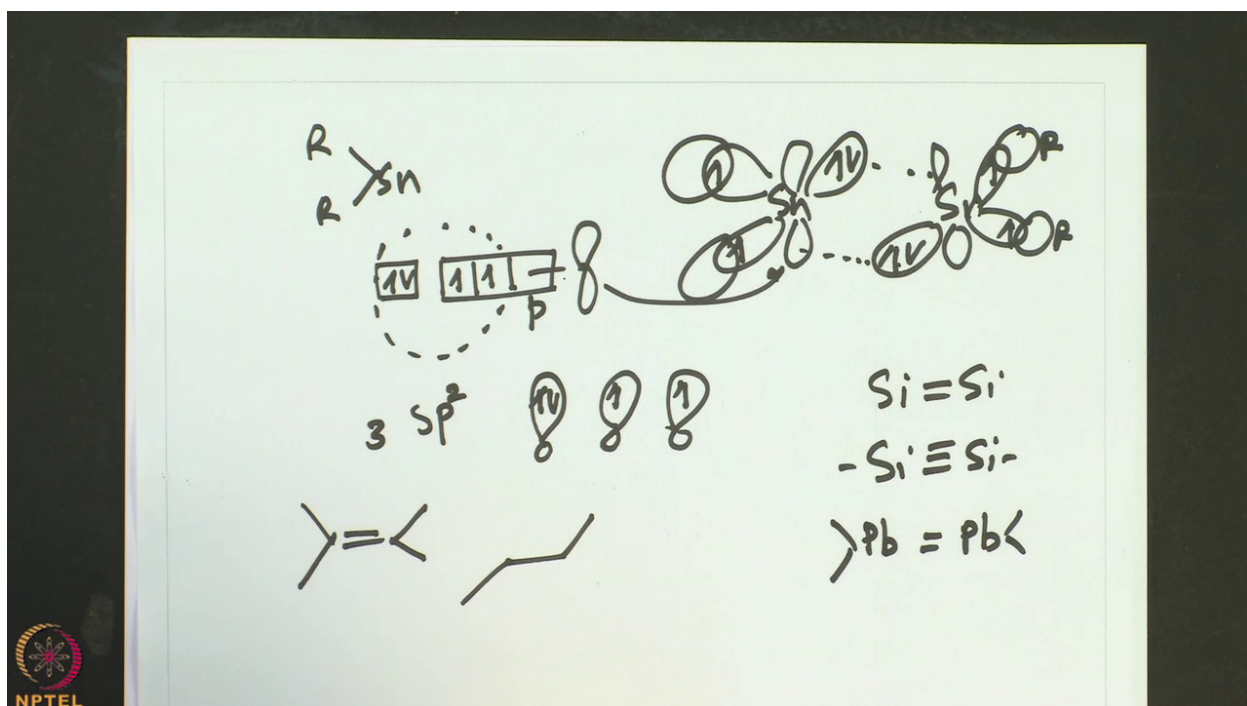 R
R Sn
1V 1 1
p
1 Sn 1V
1
Sn 1 R
1V 1 R
3 sp²
1V 1 1
Si = Si
-Si ≡ Si-
Pb = Pb
NPTEL